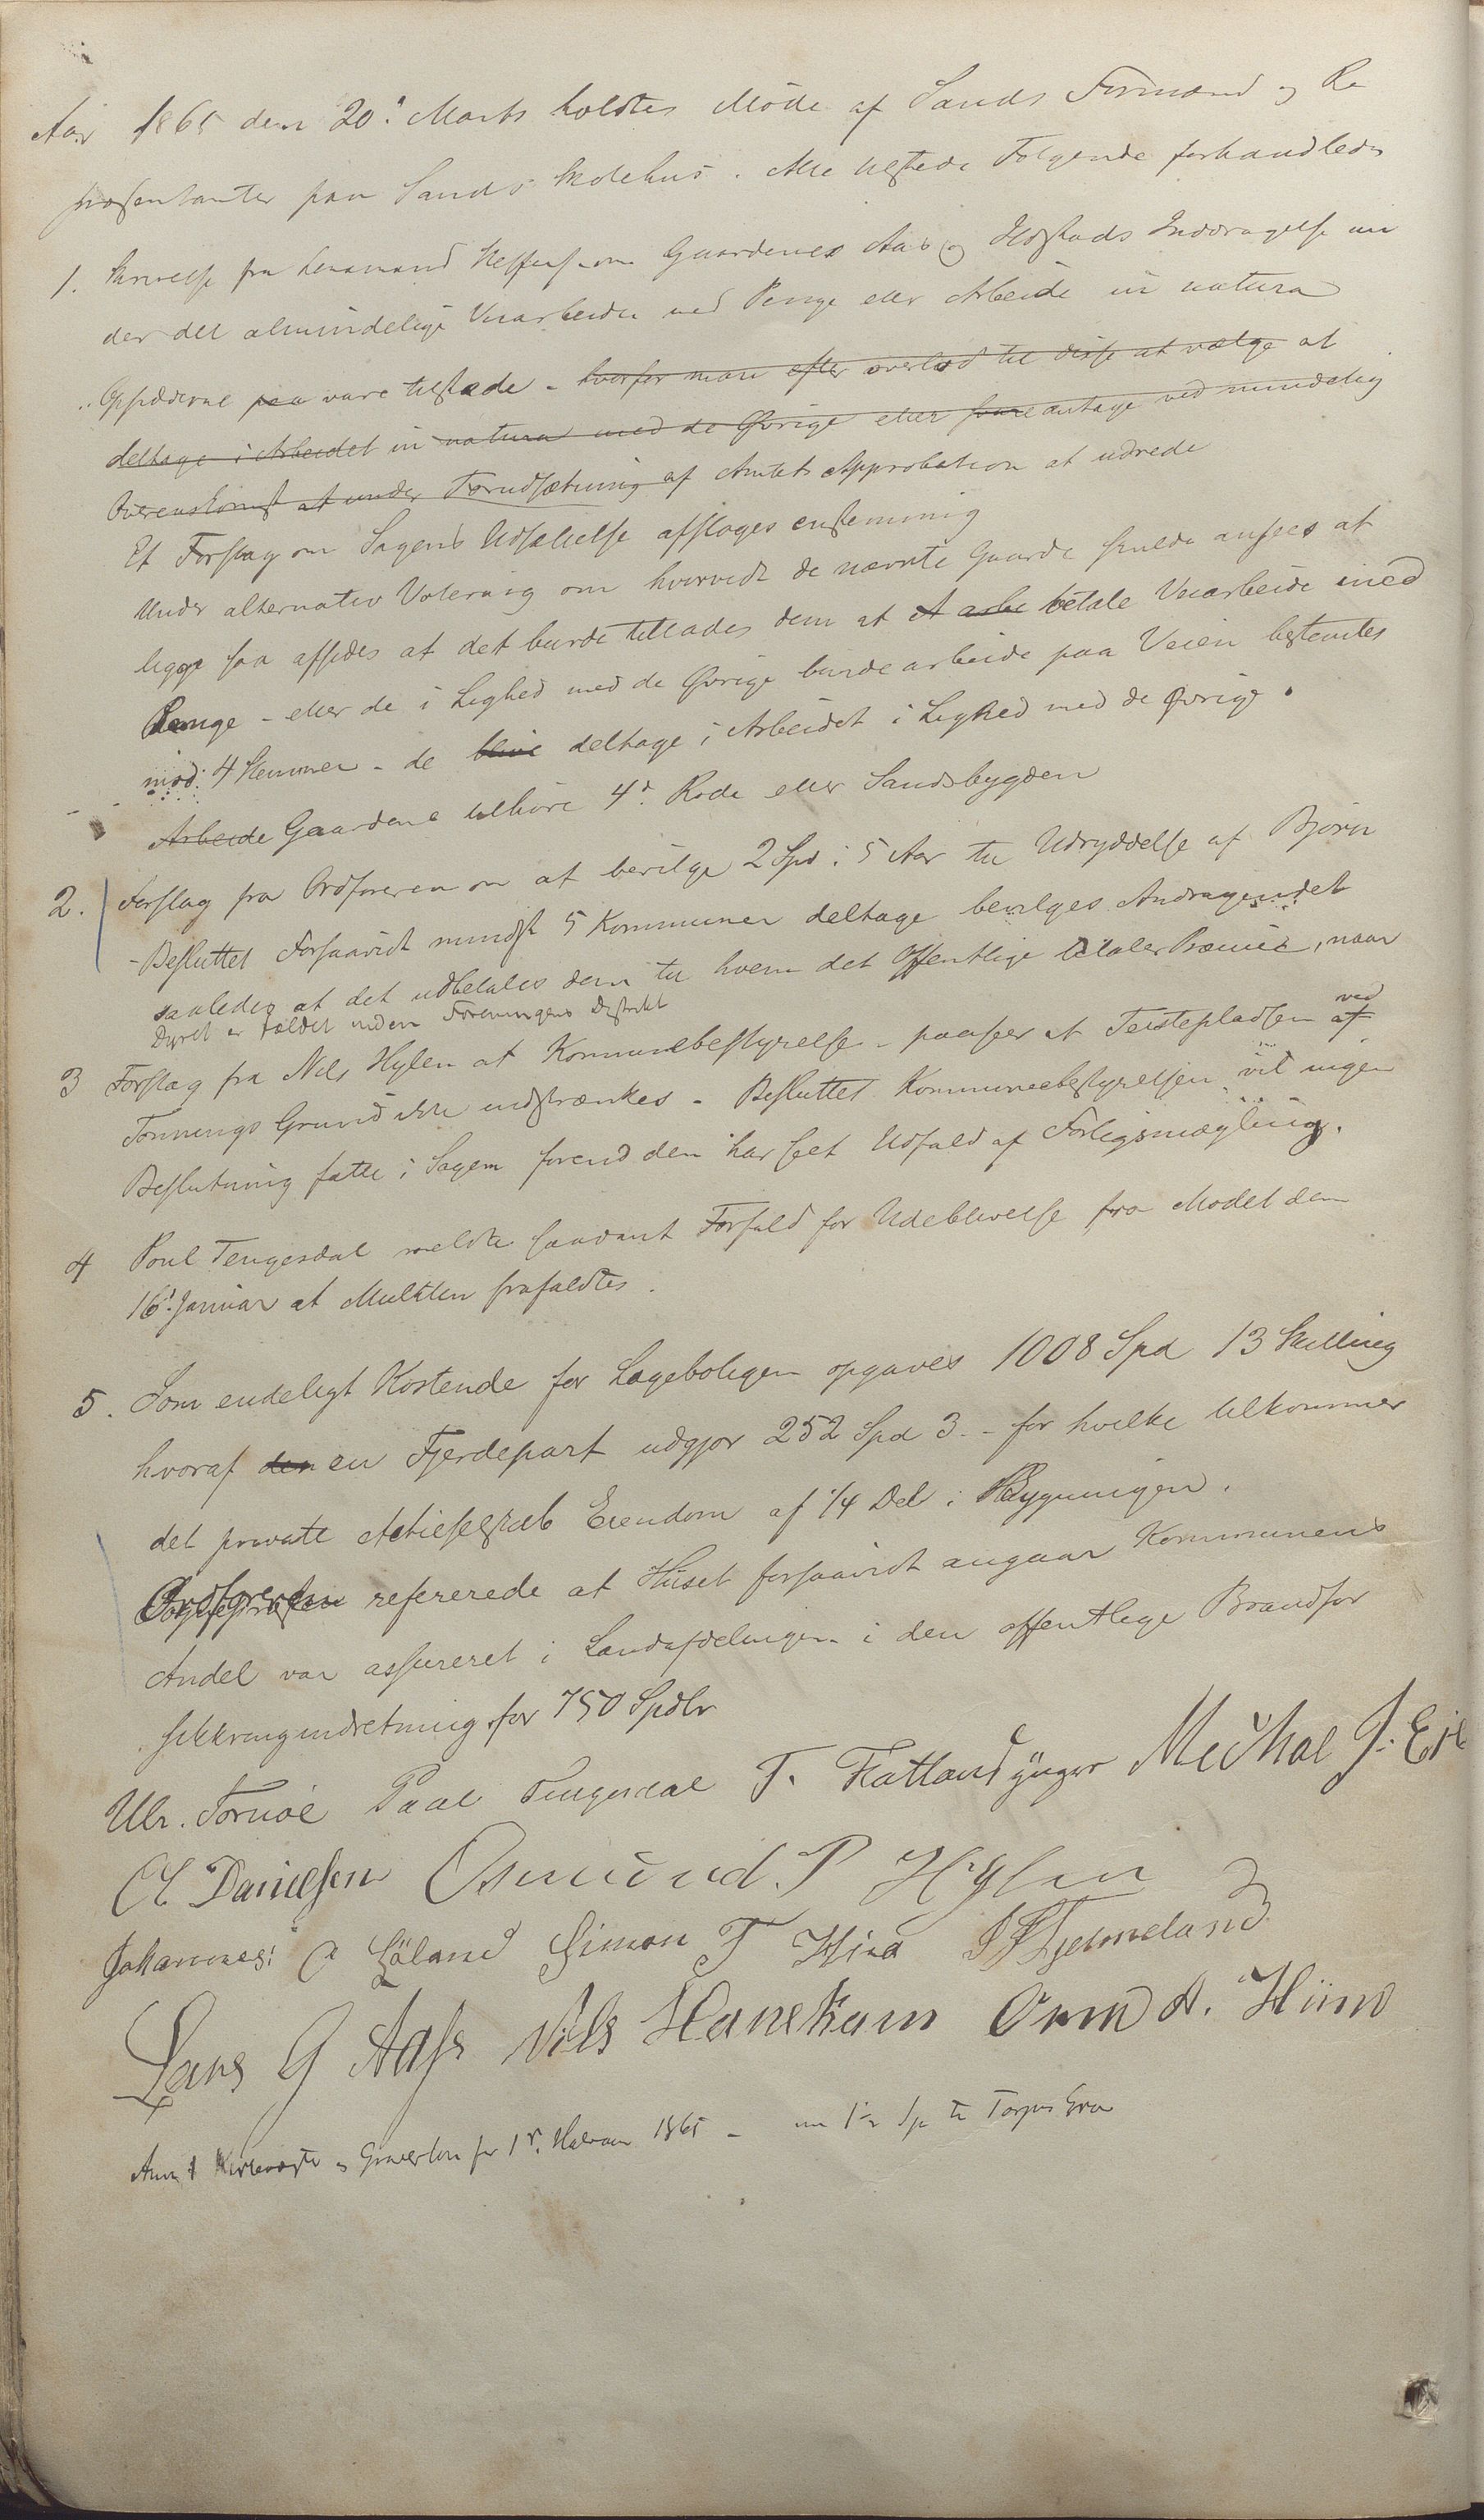 Aar 1865 den 20de Marts holdtes Møde af Sands Formænd og Re
præsentanter paa Sands Skolehus. Alle tilstede Følgende forhandledes
1. Skrivelse fra Lensmand om Gaardenes Aas og Indragelse un
der det almindelige Veiarbeide med Penge eller Arbeide in natura
Opsidderne paa vare tilstæde - hvorfor man efter overlod til disse at vælge at
deltage i Arbeidet in natura med de Øvrige eller antage ved mindelig
Overenskomst at under Forudsætning af Amtets Approbation at udrede
Et Forslag om Sagens Udsættelse afsloges enstemmig
Under alternativ Votering om hvorvidt de nævnte Gaarde skulde ansees at
ligge saa afsides at det burde tillades dem at A arbe betale Veiarbeide med
Penge - eller de i Lighed med de Øvrige burde arbeide paa Veien bestemtes
mod: 4 Stemmer - de deltage i Arbeidet i Lighed med de Øvrige.
Arbeide Gaardene tilhøre 4de Rode eller Sandsbygden
2. Forslag fra Ordføreren om at bevilge 2 Spd i 5 Aar til Udryddelse af Bjørn
- Besluttet Forsaavidt mindst 5 Kommuner deltage bevilges Andragendet
saaledes at det udbetales dem til hvem det Offentlige betaler Præmie, naar
Dyret er fældet inden Foreningens Distrikt
3 Forslag fra Nils Hylen at Kommunebestyrelse - paaseer at Teistepladsen af ved
Tonnings Grund ikke indskrænkes - Besluttet Kommunebestyrelsen vil ingen
Beslutning fatte i Sagen førend den har seet Udfald af Forligsmægling.
4 Poul Tengesdal meldte saadant Forfald for Udeblivelse fra Mødet den
16de Januar at Mulkten frafaldtes.
5. Som endeligt Kostende for Lægeboligen opgaves 1008 Spd 13 Skilling
hvoraf den en Fjerdepart udgjør 252 Spd 3 - for hvilke tilkommer
det private Actieselskab Eiendom af 1/4 Del i Bygningen.
Ordføreren refererede at Huset forsaavidt angaar Kommunens
Andel var assureret i Landafdelingen i den offentlige Brandfor
sikkringsindretning for 750 Spdlr
Ulr. Tornøe Paal Tengesdal T. Flatland ynger Michal J. Eie
Cl Danielsen Osmund. P Hylen
Johannes: O Søland Simon T Hiia Hjelmeland
Lars G Aass Nils Hanekam Orm A. Hiim
Anm Kirkevægter og Graverløn for 1ste Halvaar 1865 -